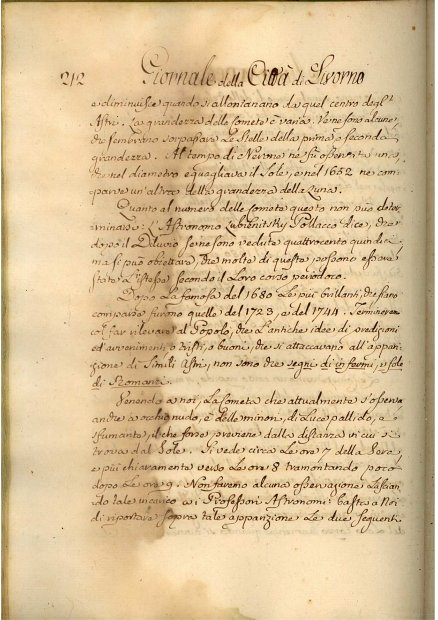 212 Giornale della Città di Livorno
e diminuisce quando si allontanano da quel centro degl'
Astri. La grandezza delle Comete è varia. Ve ne sono alcune,
che sembrano sorpassare le Stelle della prima o seconda
grandezza. Al tempo di Nerone ne fu osservata una,
che nel diametro eguagliava il Sole, e nel 1652 ne com-
parve un'altra della grandezza della Luna.
Quanto al numero delle Comete questo non può deter-
minarsi: L'Astronomo Lubienitsky Pollacco dice, che
dopo il Diluvio se ne son vedute quattrocento quindici
ma si può obiettare, che molte di queste possono essere
state l'istessa secondo il loro corso periodico.
Dopo la famosa del 1680 le più brillanti, che siano
comparse furono quelle del 1723, e del 1744. Termineremo
col far rilevare al Popolo, che l'antiche idee di predizioni
ed avvenimenti o tristi, o buoni, che si attaccavano all'appari-
zione di Simili Astri, non sono che segni di infermi, e fole
di Romanzi.
Venendo a noi, la Cometa che attualmente si osserva
anche a occhio nudo, è delle minori, di Luce pallida, e
sfumante, il che forse proviene dalla distanza in cui si
trova dal Sole. Si vede circa le ore 7 della Sera
e più chiaramente verso le ore 8 tramontando poco
dopo le ore 9. Non faremo alcuna osservazione lascian-
do tale incarico a i Professori Astronomi: basta a Noi
di riportare sopra tale apparizione le due seguenti